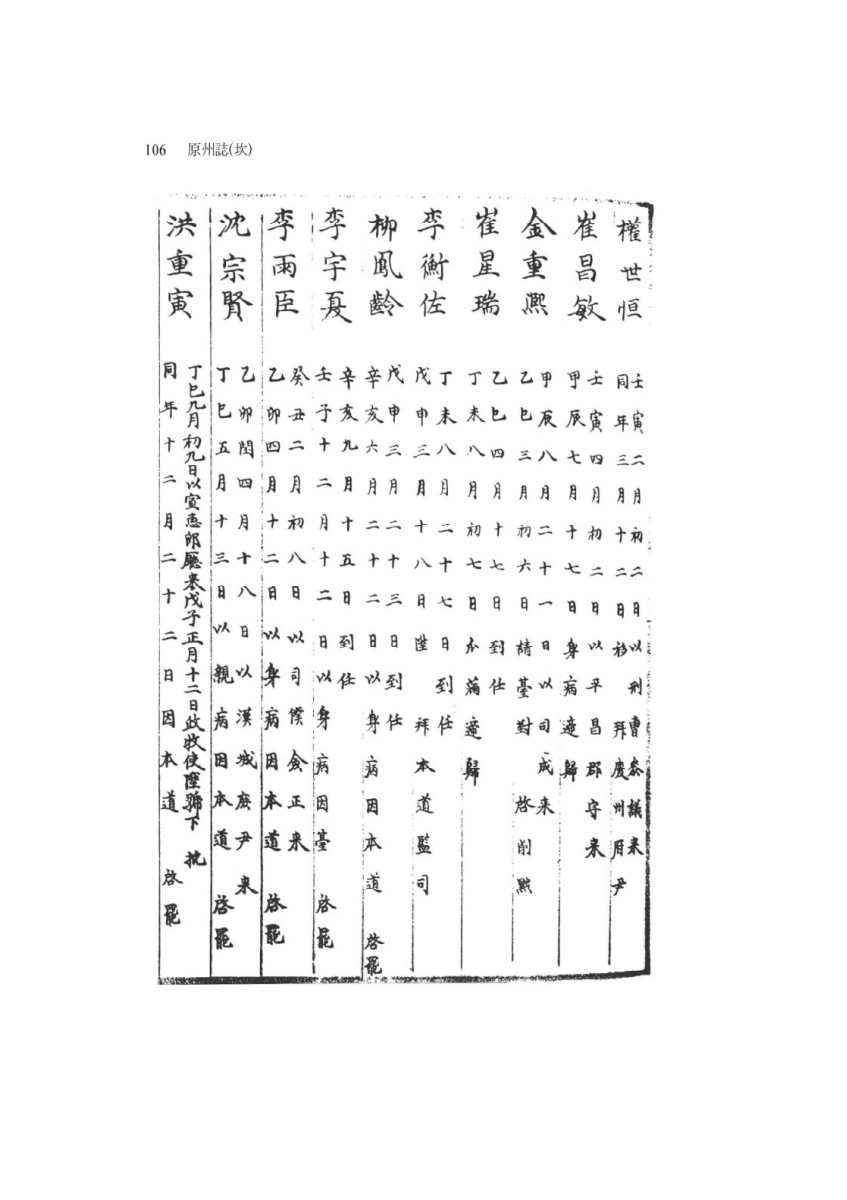 106 原州誌(坎)
權世恒
壬寅二月初二日以刑曹參議來
同年三月十二日移拜慶州府尹
崔昌敏
壬寅四月初二日以平昌郡守來
甲辰七月十七日身病遞歸
金重凞
甲辰八月二十一日以司成來
乙巳三月初六日請臺對 啓削黜
崔星瑞
乙巳四月十七日到任
丁未八月初七日瓜滿遞歸
李衡佐
丁未八月二十七日到任
戊申三月十八日陞拜本道監司
柳鳳齡
戊申三月二十三日到任
辛亥六月二十二日以身病因本道 啓罷
李宇夏
辛亥九月十五日到任
壬子十二月十二日以身病因臺 啓罷
李雨臣
癸丑二月初八日以司僕僉正來
乙卯四月十二日以身病因本道 啓罷
沈宗賢
乙卯閏四月十八日以漢城庶尹來
丁巳五月十三日以親病因本道 啓罷
洪重寅
丁巳九月初九日以宣惠郎廳來戊子正月十二日此牧使陞號下批
同年十二月二十二日因本道 啓罷